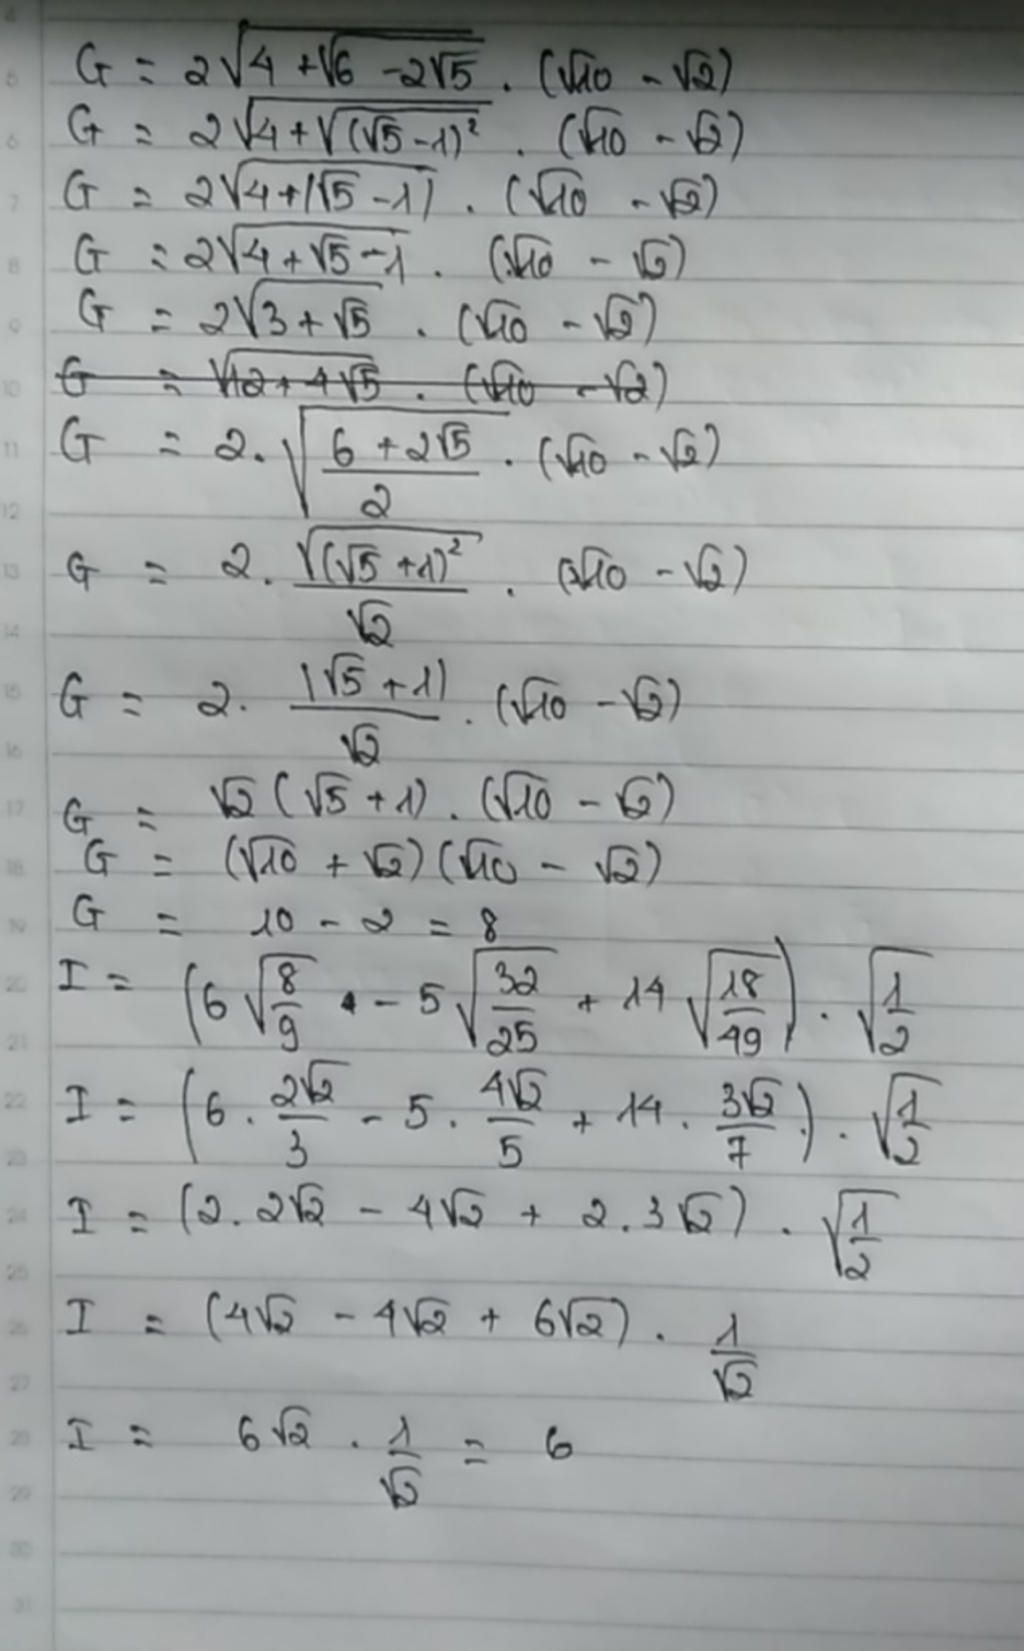 G = 2√(4 + √(6 - 2√5)) . (√10 - √2)
G = 2√(4 + √((√5 - 1)²)) . (√10 - √2)
G = 2√(4 + |√5 - 1|) . (√10 - √2)
G = 2√(4 + √5 - 1) . (√10 - √2)
G = 2√(3 + √5) . (√10 - √2)
G = √(12 + 4√5) . (√10 - √2)
G = 2 . √((6 + 2√5)/2) . (√10 - √2)
G = 2 . √((√5 + 1)²)/√2 . (√10 - √2)
G = 2 . |√5 + 1|/√2 . (√10 - √2)
G = √2 (√5 + 1) . (√10 - √2)
G = (√10 + √2)(√10 - √2)
G = 10 - 2 = 8
I = (6√(8/9) - 5√(32/25) + 14√(18/49)) . √(1/2)
I = (6 . 2√2/3 - 5 . 4√2/5 + 14 . 3√2/7) . √(1/2)
I = (2 . 2√2 - 4√2 + 2 . 3√2) . √(1/2)
I = (4√2 - 4√2 + 6√2) . 1/√2
I = 6√2 . 1/√2 = 6